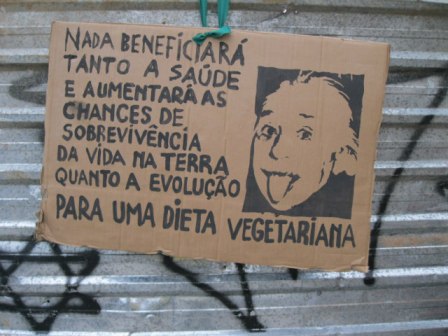 NADA BENEFICIARÁ
TANTO A SAÚDE
E AUMENTARÁ AS
CHANCES DE
SOBREVIVÊNCIA
DA VIDA NA TERRA
QUANTO A EVOLUÇÃO
PARA UMA DIETA VEGETARIANA